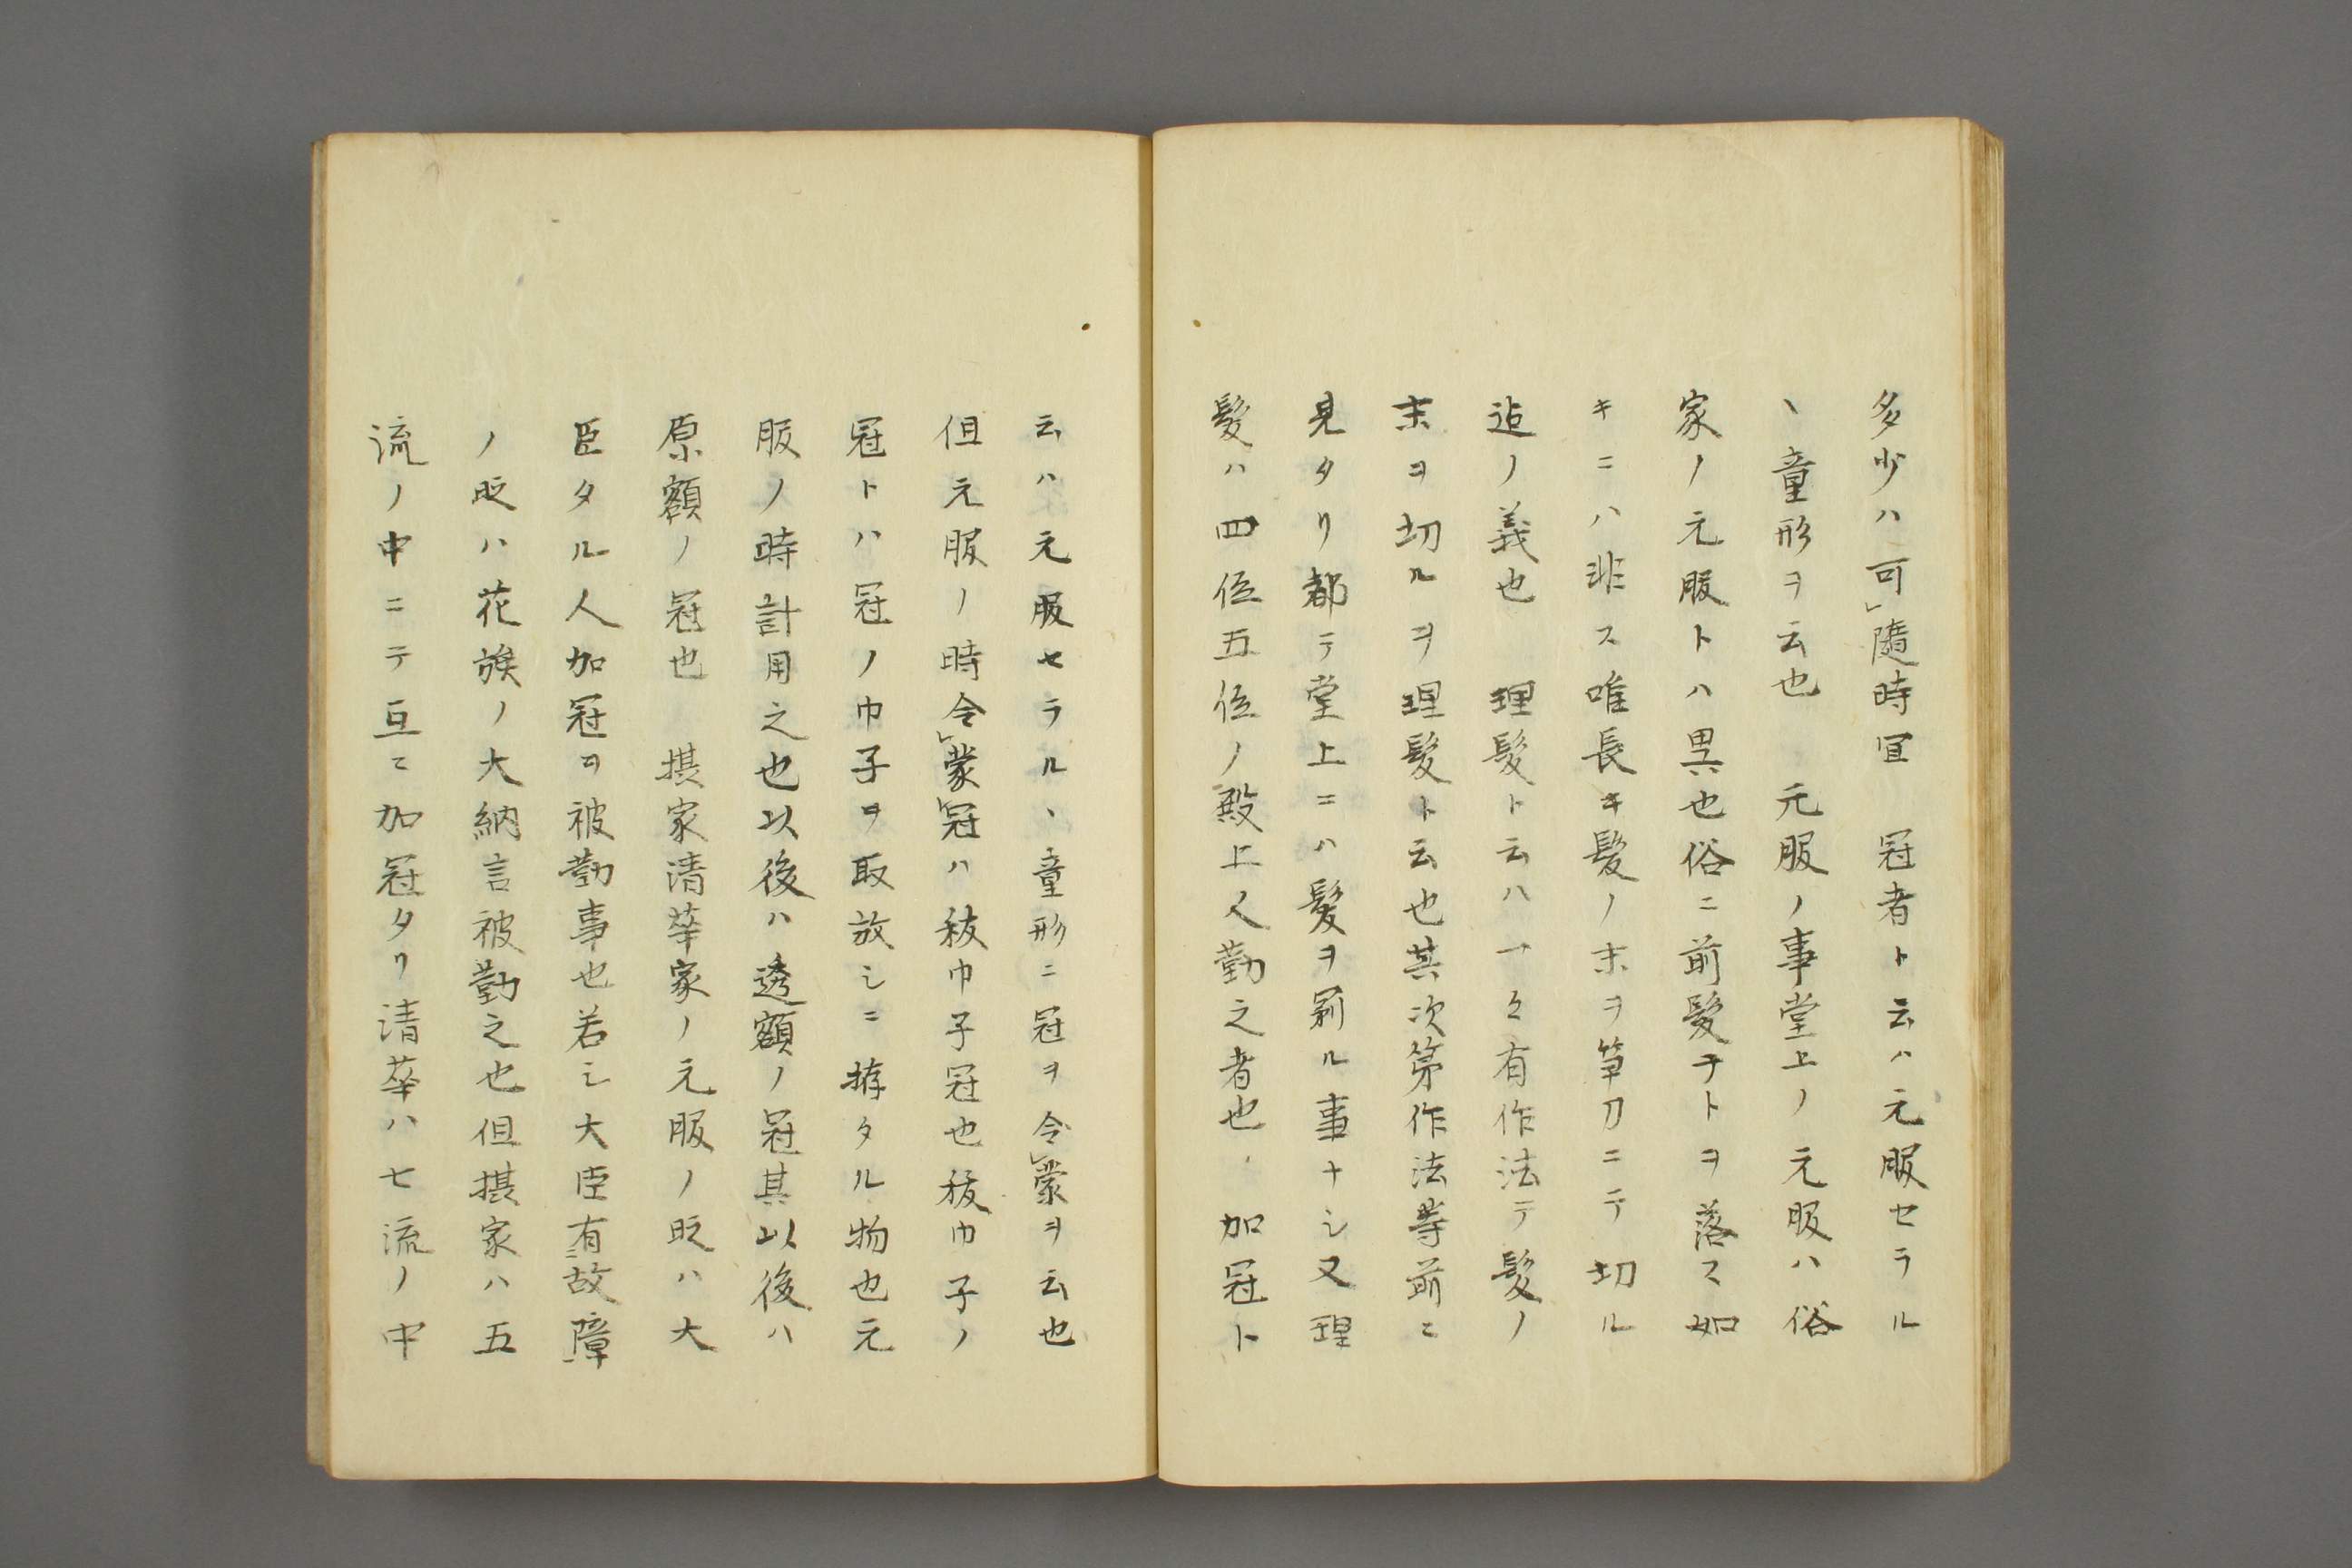 多少ハ可隨時冝　冠者ト云ハ元服セラル
ヽ童形ヲ云也　元服ノ事堂上ノ元服ハ俗
家ノ元服トハ異也俗ニ前髪ナトヲ落ス如
キニハ非ス唯長キ髪ノ末ヲ笄刀ニテ切ル
迠ノ義也　理髪ト云ハ一々有作法テ髪ノ
末ヲ切ルヲ理髪ト云也其次第作法等前ニ
見タリ都テ堂上ニハ髪ヲ剃ル事ナシ又理
髪ハ四位五位ノ殿上人勤之者也　加冠ト
云ハ元服セラルヽ童形ニ冠ヲ令蒙ヲ云也
但元服ノ時令蒙冠ハ秡巾子冠也秡巾子ノ
冠トハ冠ノ巾子ヲ取放シニ拵タル物也元
服ノ時計用之也以後ハ透額ノ冠其以後ハ
原額ノ冠也　摂家清華家ノ元服ノ時ハ大
臣タル人加冠ヲ被勤事也若シ大臣有故障
ノ時ハ花族ノ大納言被勤之也但摂家ハ五
流ノ中ニテ互ニ加冠タリ清華ハ七流ノ中